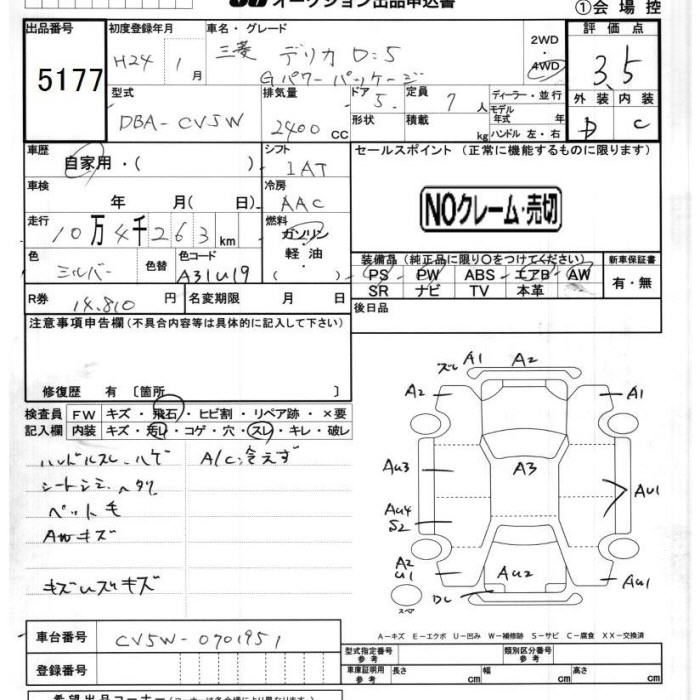 オークション出品申込書
①会場控
出品番号
5177
初度登録年月
H24 1月
車名・グレード
三菱 デリカ D:5
Gパワーパッケージ
2WD
4WD
評価点
3.5
外装 内装
D C
型式
DBA-CV5W
排気量
2400 CC
ドア 5
形状
定員 7 人
積載 kg
ディーラー・並行
モデル年式 年
ハンドル 左・右
車歴
自家用・( )
シフト
IAT
セールスポイント (正常に機能するものに限ります)
NOクレーム・売切
車検
年 月( 日)
冷房
AAC
走行
10万4千263km
燃料
ガソリン・
軽油
・( )
色
シルバー
色替
色コード
A31U19
装備品 (純正品に限り○をつけてください)
PS PW ABS エアB AW
SR ナビ TV 本革
新車保証書
有・無
R券
14,810 円
名変期限 月 日
後日品
注意事項申告欄 (不具合内容等は具体的に記入して下さい)
修復歴 有 〔箇所 〕
検査員
記入欄
FW キズ・飛石・ヒビ割・リペア跡・×要
内装 キズ・汚レ・コゲ・穴・スレ・キレ・破レ
ハンドルスレ・ハゲ
A/C冷えず
シートシミ、ヘタリ
ペット毛
AWキズ
キズUスキズ
ズレ A1 A2
A2 A1
Au3 A3
Au1
Au4
S2
A2
U1
Au2 Au1
DL
スペア
A-キズ E-エクボ U-凹み W-補修跡 S-サビ C-腐食 XX-交換済
車台番号
CV5W-0701951
登録番号
型式指定番号
参考
類別区分番号
参考
車庫証明用
参考
長さ cm 幅 cm 高さ cm
希望出品コーナー